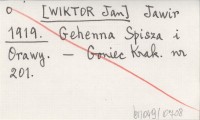 [WIKTOR Jan] Jawir
1919. Gehenna Spisza i
Orawy. — Goniec Krak. nr
201.